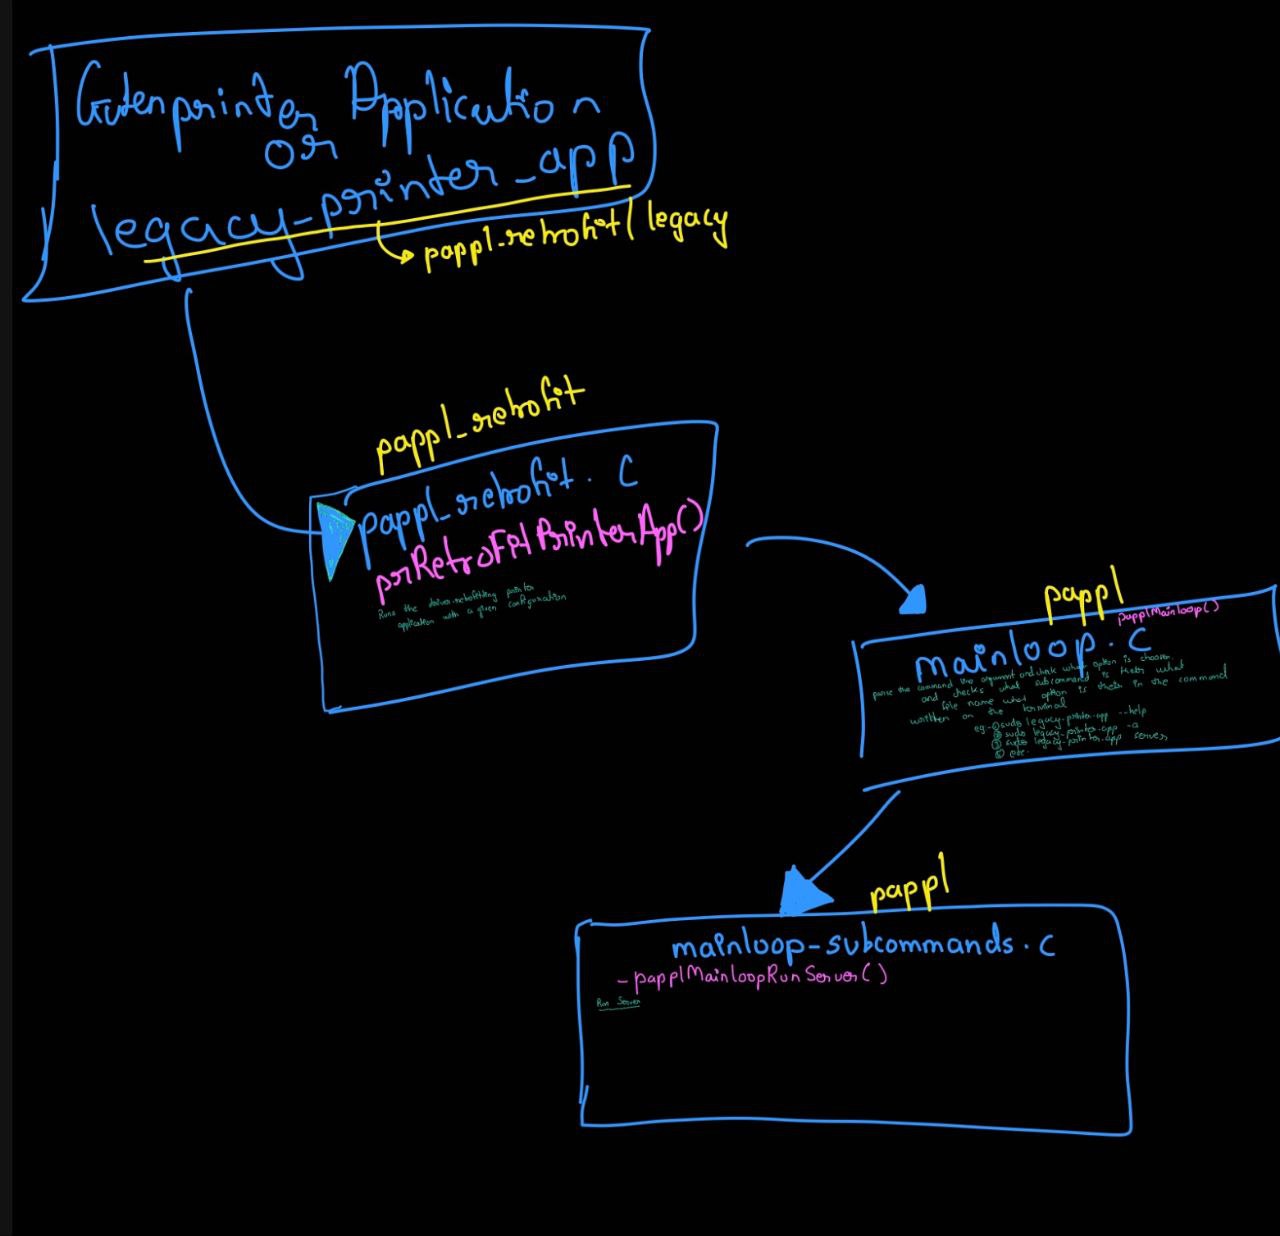 Gutenprinter Application
or
legacy-printer_app
pappl-retrofit/legacy
pappl_retrofit
pappl_retrofit.c
prRetroFitPrinterApp()
Runs the driver-retrofitting printer
application with a given configuration
pappl
papplMainloop()
mainloop.c
parse the command the argument and check what option is choosen
and checks what subcommand is their what
file name what option is their in the command
written on the terminal
eg-① sudo legacy-printer-app --help
② sudo legacy-printer-app -a
③ sudo legacy-printer-app server
④ etc.
pappl
mainloop-subcommands.c
-papplMainloopRunServer()
Run Server